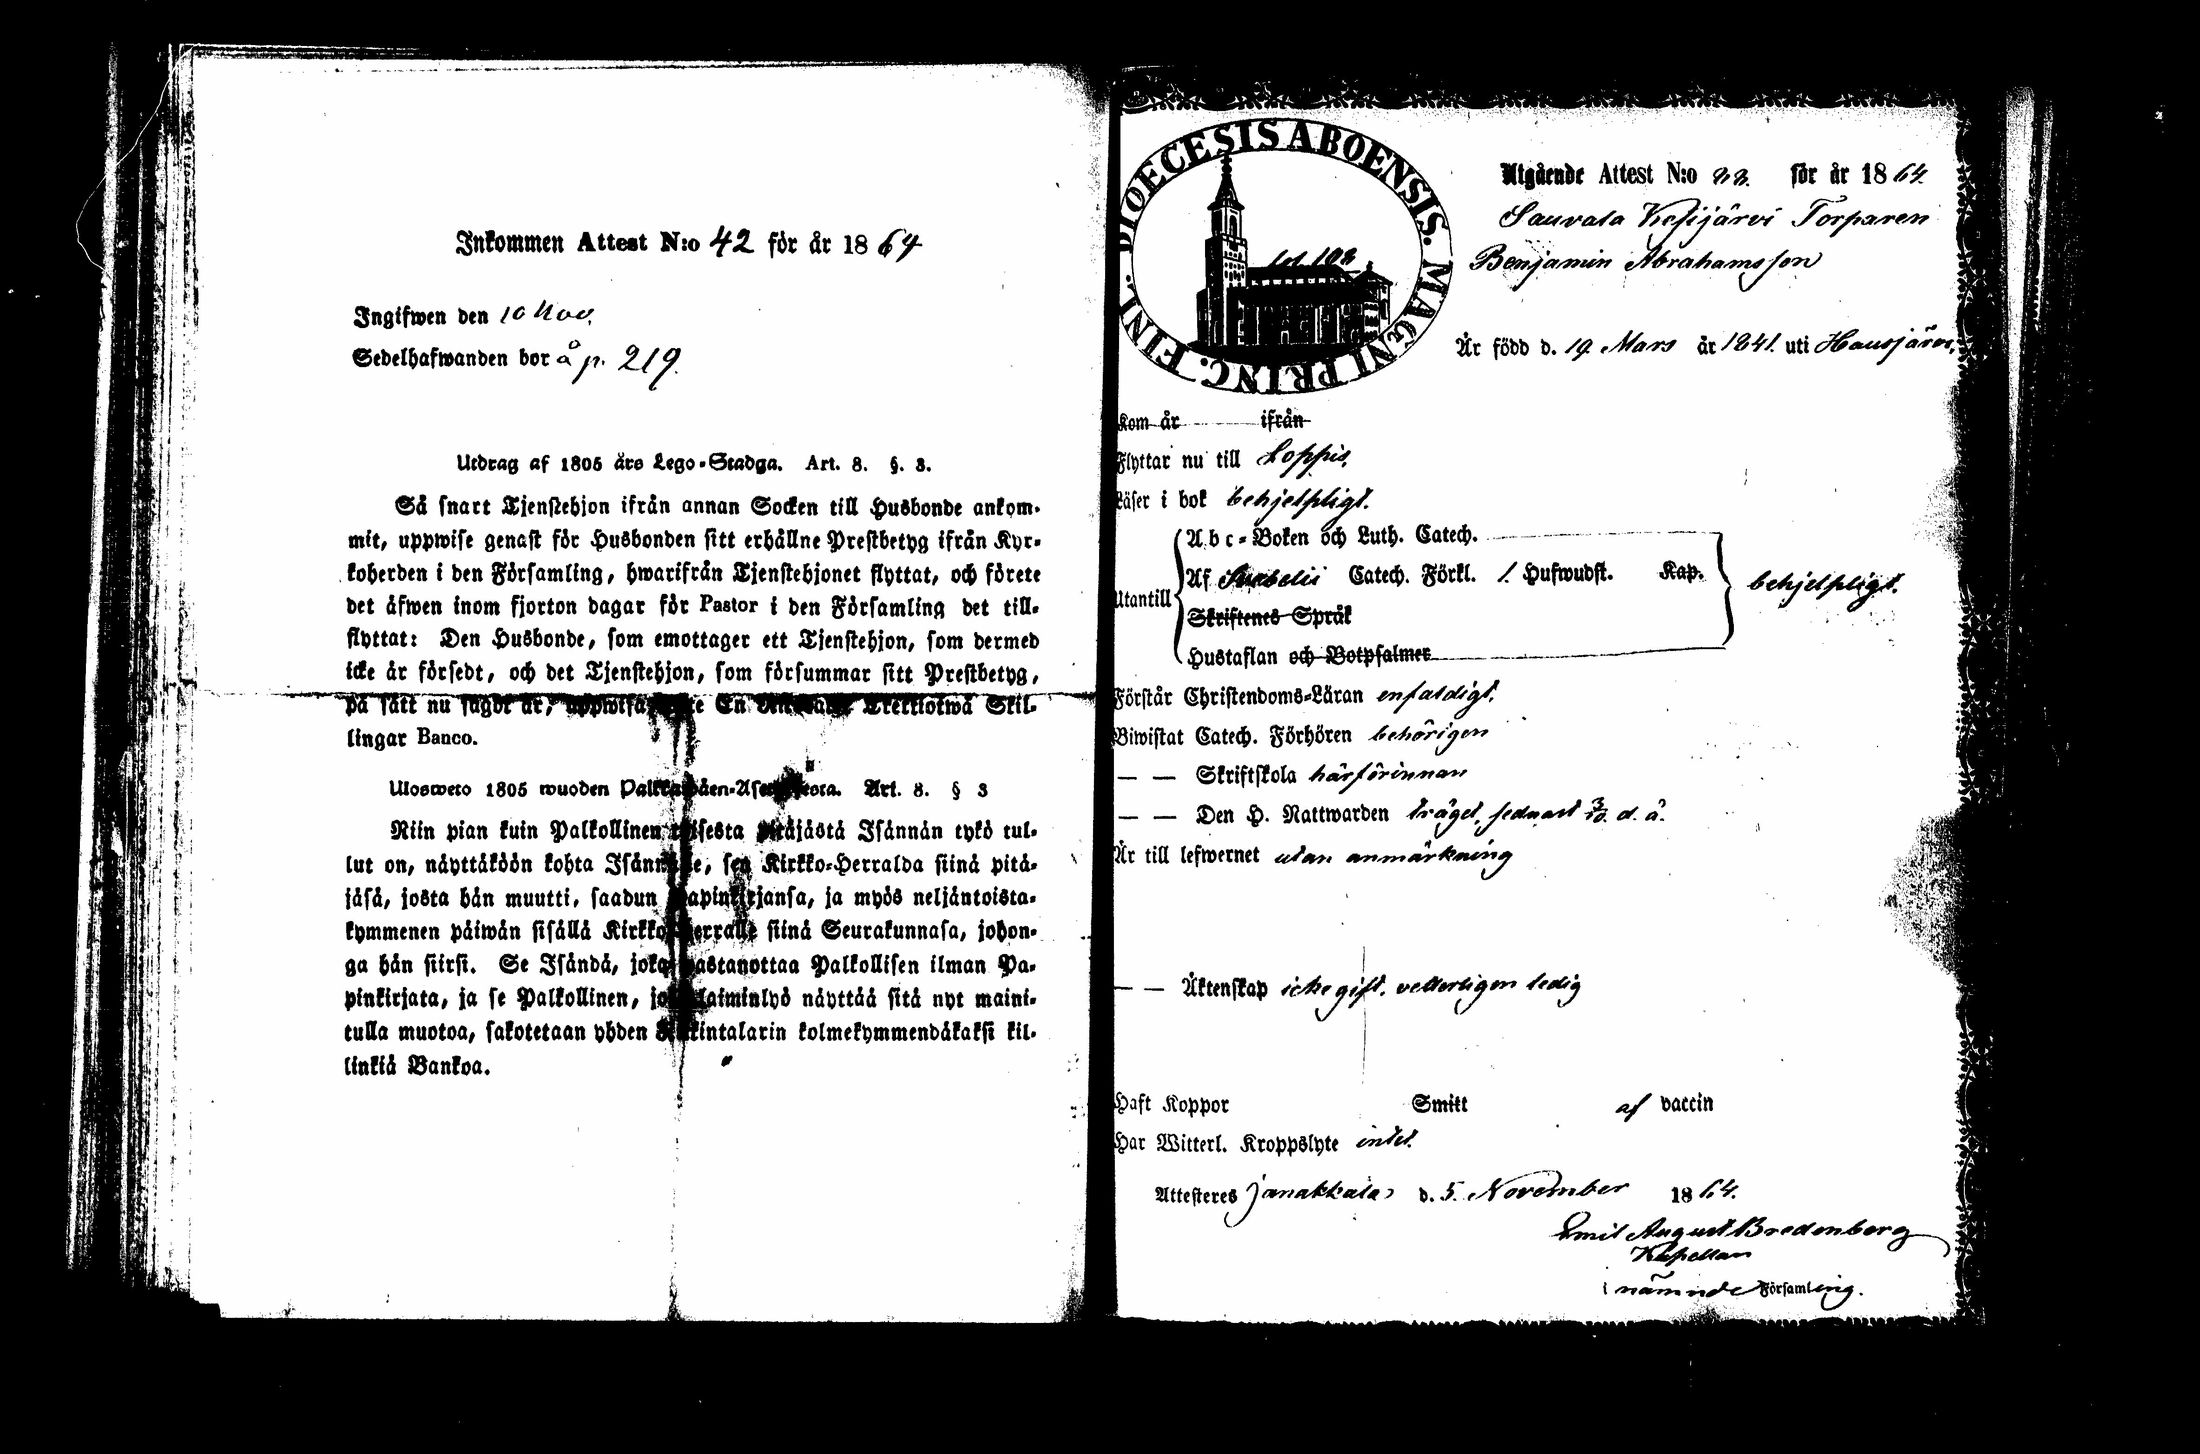 Inkommen Attest N:o 42 för år 1864
Ingifwen den 10 Nov.
Sedelhafwanden bor å p. 219.
Utdrag af 1805 års Lego-Stadga. Art. 8. §. 3.
Så snart Tjenstehjon ifrån annan Socken till Husbonde ankom-
mit, uppwise genast för Husbonden sitt erhållne Prestbetyg ifrån Kyr-
koherden i den Församling, hwarifrån Tjenstehjonet flyttat, och förete
det äfwen inom fjorton dagar för Pastor i den Församling det till-
flyttat: Den Husbonde, som emottager ett Tjenstehjon, som dermed
icke är försedt, och det Tjenstehjon, som försummar sitt Prestbetyg,
på sätt nu sagdt är, uppwisa, En Trettiotwå Skil-
lingar Banco.
Ulosweto 1805 wuoden Art. 8. § 3
Niin pian kuin Palkollinen toisesta pitäjästä Isännän tykö tul-
lut on, näyttäköön kohta Isännälle, sen Kirkko-Herralda siinä pitä-
jäsä, josta hän muutti, saadun Papinkirjansa, ja myös neljäntoista-
kymmenen päiwän sisällä Kirkko-Herralle siinä Seurakunnasa, johon-
ga hän siirsi. Se Isändä, joka wastanottaa Palkollisen ilman Pa-
pinkirjata, ja se Palkollinen, joka laiminlyö näyttää sitä nyt maini-
tulla muotoa, sakotetaan yhden Riikintalarin kolmekymmendäkaksi kil-
linkiä Bankoa.
DIOECESIS ABOENSIS. MAGNI PRINC. FINL.
fol. 108
Utgående Attest N:o 22. för år 1864.
Sauvala Kesijärvi Torparen
Benjamin Abrahamsson
Är född d. 19. Mars år 1841. uti Hausjärvi,
Kom år ifrån
Flyttar nu till Loppis,
Läser i bok behjelpligt.
Utantill
Abc-Boken och Luth. Catech.
Af Svebelii Catech. Förkl. 1. Hufwudst. Kap.
Skriftenes Språk
Hustaflan och Botpsalmer
behjelpligt.
Förstår Christendoms-Läran enfaldigt.
Biwistat Catech. Förhören behörigen
— — Skriftskola härförinnan
— — Den H. Nattwarden träget, sednast 3/10. d. å.
Är till lefwernet utan anmärkning
— — Äktenskap icke gift. vetterligen ledig
Haft Koppor Smitt af vaccin
Har Witterl. Kroppslyte intet.
Attesteres Janakkala d. 5. November 1864.
Emil August Bredenberg
Kapellan
i nämnde Församling.